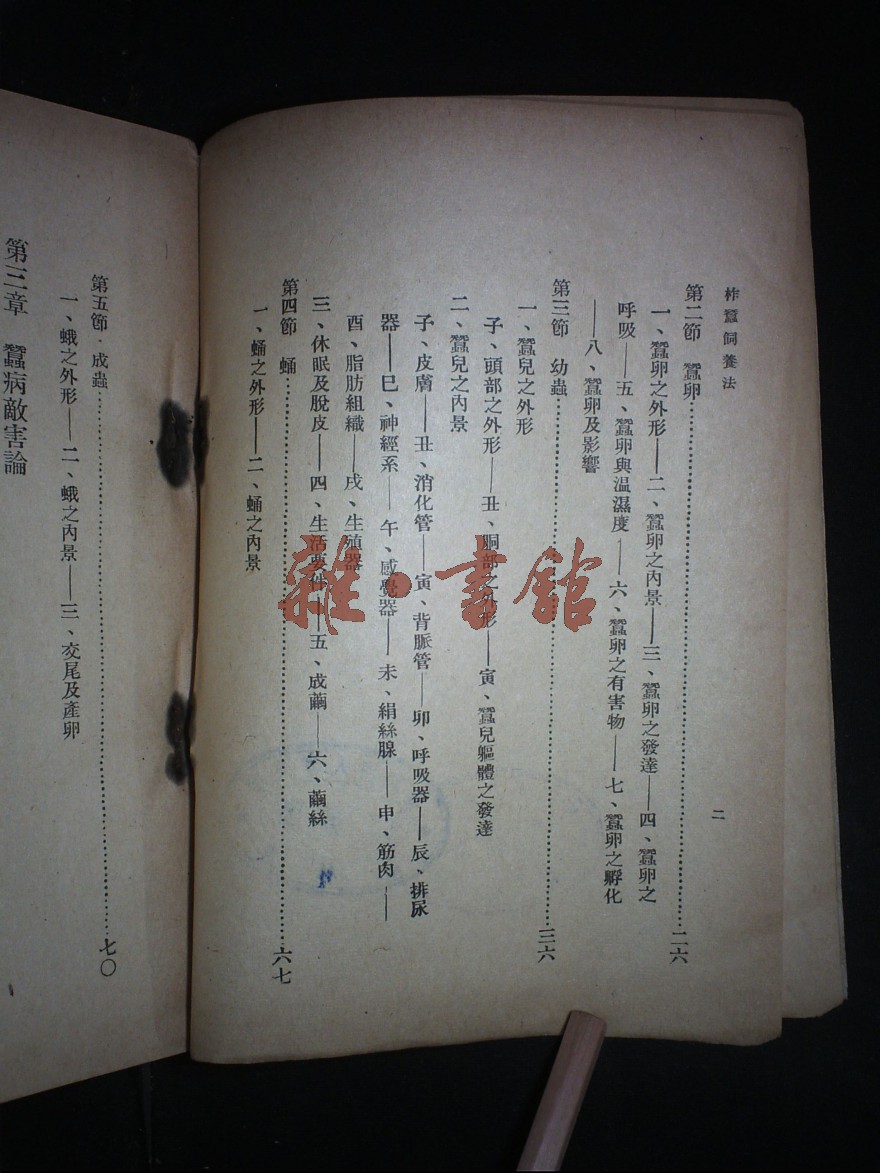 柞蠶飼養法
二
第二節　蠶卵……二六
一、蠶卵之外形——二、蠶卵之內景——三、蠶卵之發達——四、蠶卵之
呼吸——五、蠶卵與温濕度——六、蠶卵之有害物——七、蠶卵之孵化
——八、蠶卵及影響
第三節　幼蟲……三六
一、蠶兒之外形
子、頭部之外形——丑、胴部之外形——寅、蠶兒軀體之發達
二、蠶兒之內景
子、皮膚——丑、消化管——寅、背脈管——卯、呼吸器——辰、排尿
器——巳、神經系——午、感覺器——未、絹絲腺——申、筋肉——
酉、脂肪組織——戌、生殖器
三、休眠及脫皮——四、生活要件——五、成繭——六、繭絲
第四節　蛹……六七
一、蛹之外形——二、蛹之內景
第五節．成蟲……七〇
一、蛾之外形——二、蛾之內景——三、交尾及產卵
第三章　蠶病敵害論
雜·書館